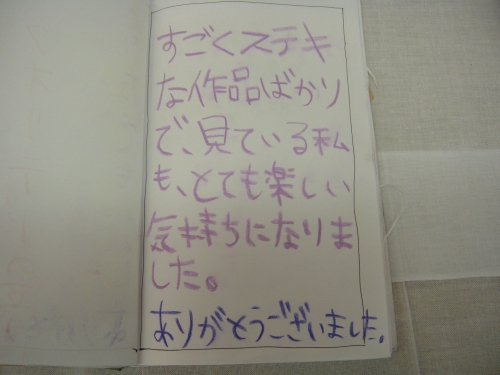 すごくステキ
な作品ばかり
で、見ている私
も、とても楽しい
気持ちになりま
した。
ありがとうございました。